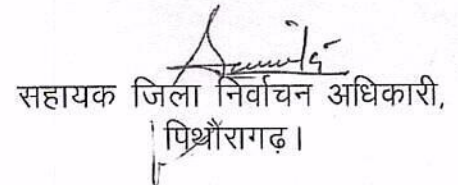 सहायक जिला निर्वाचन अधिकारी,
पिथौरागढ़।